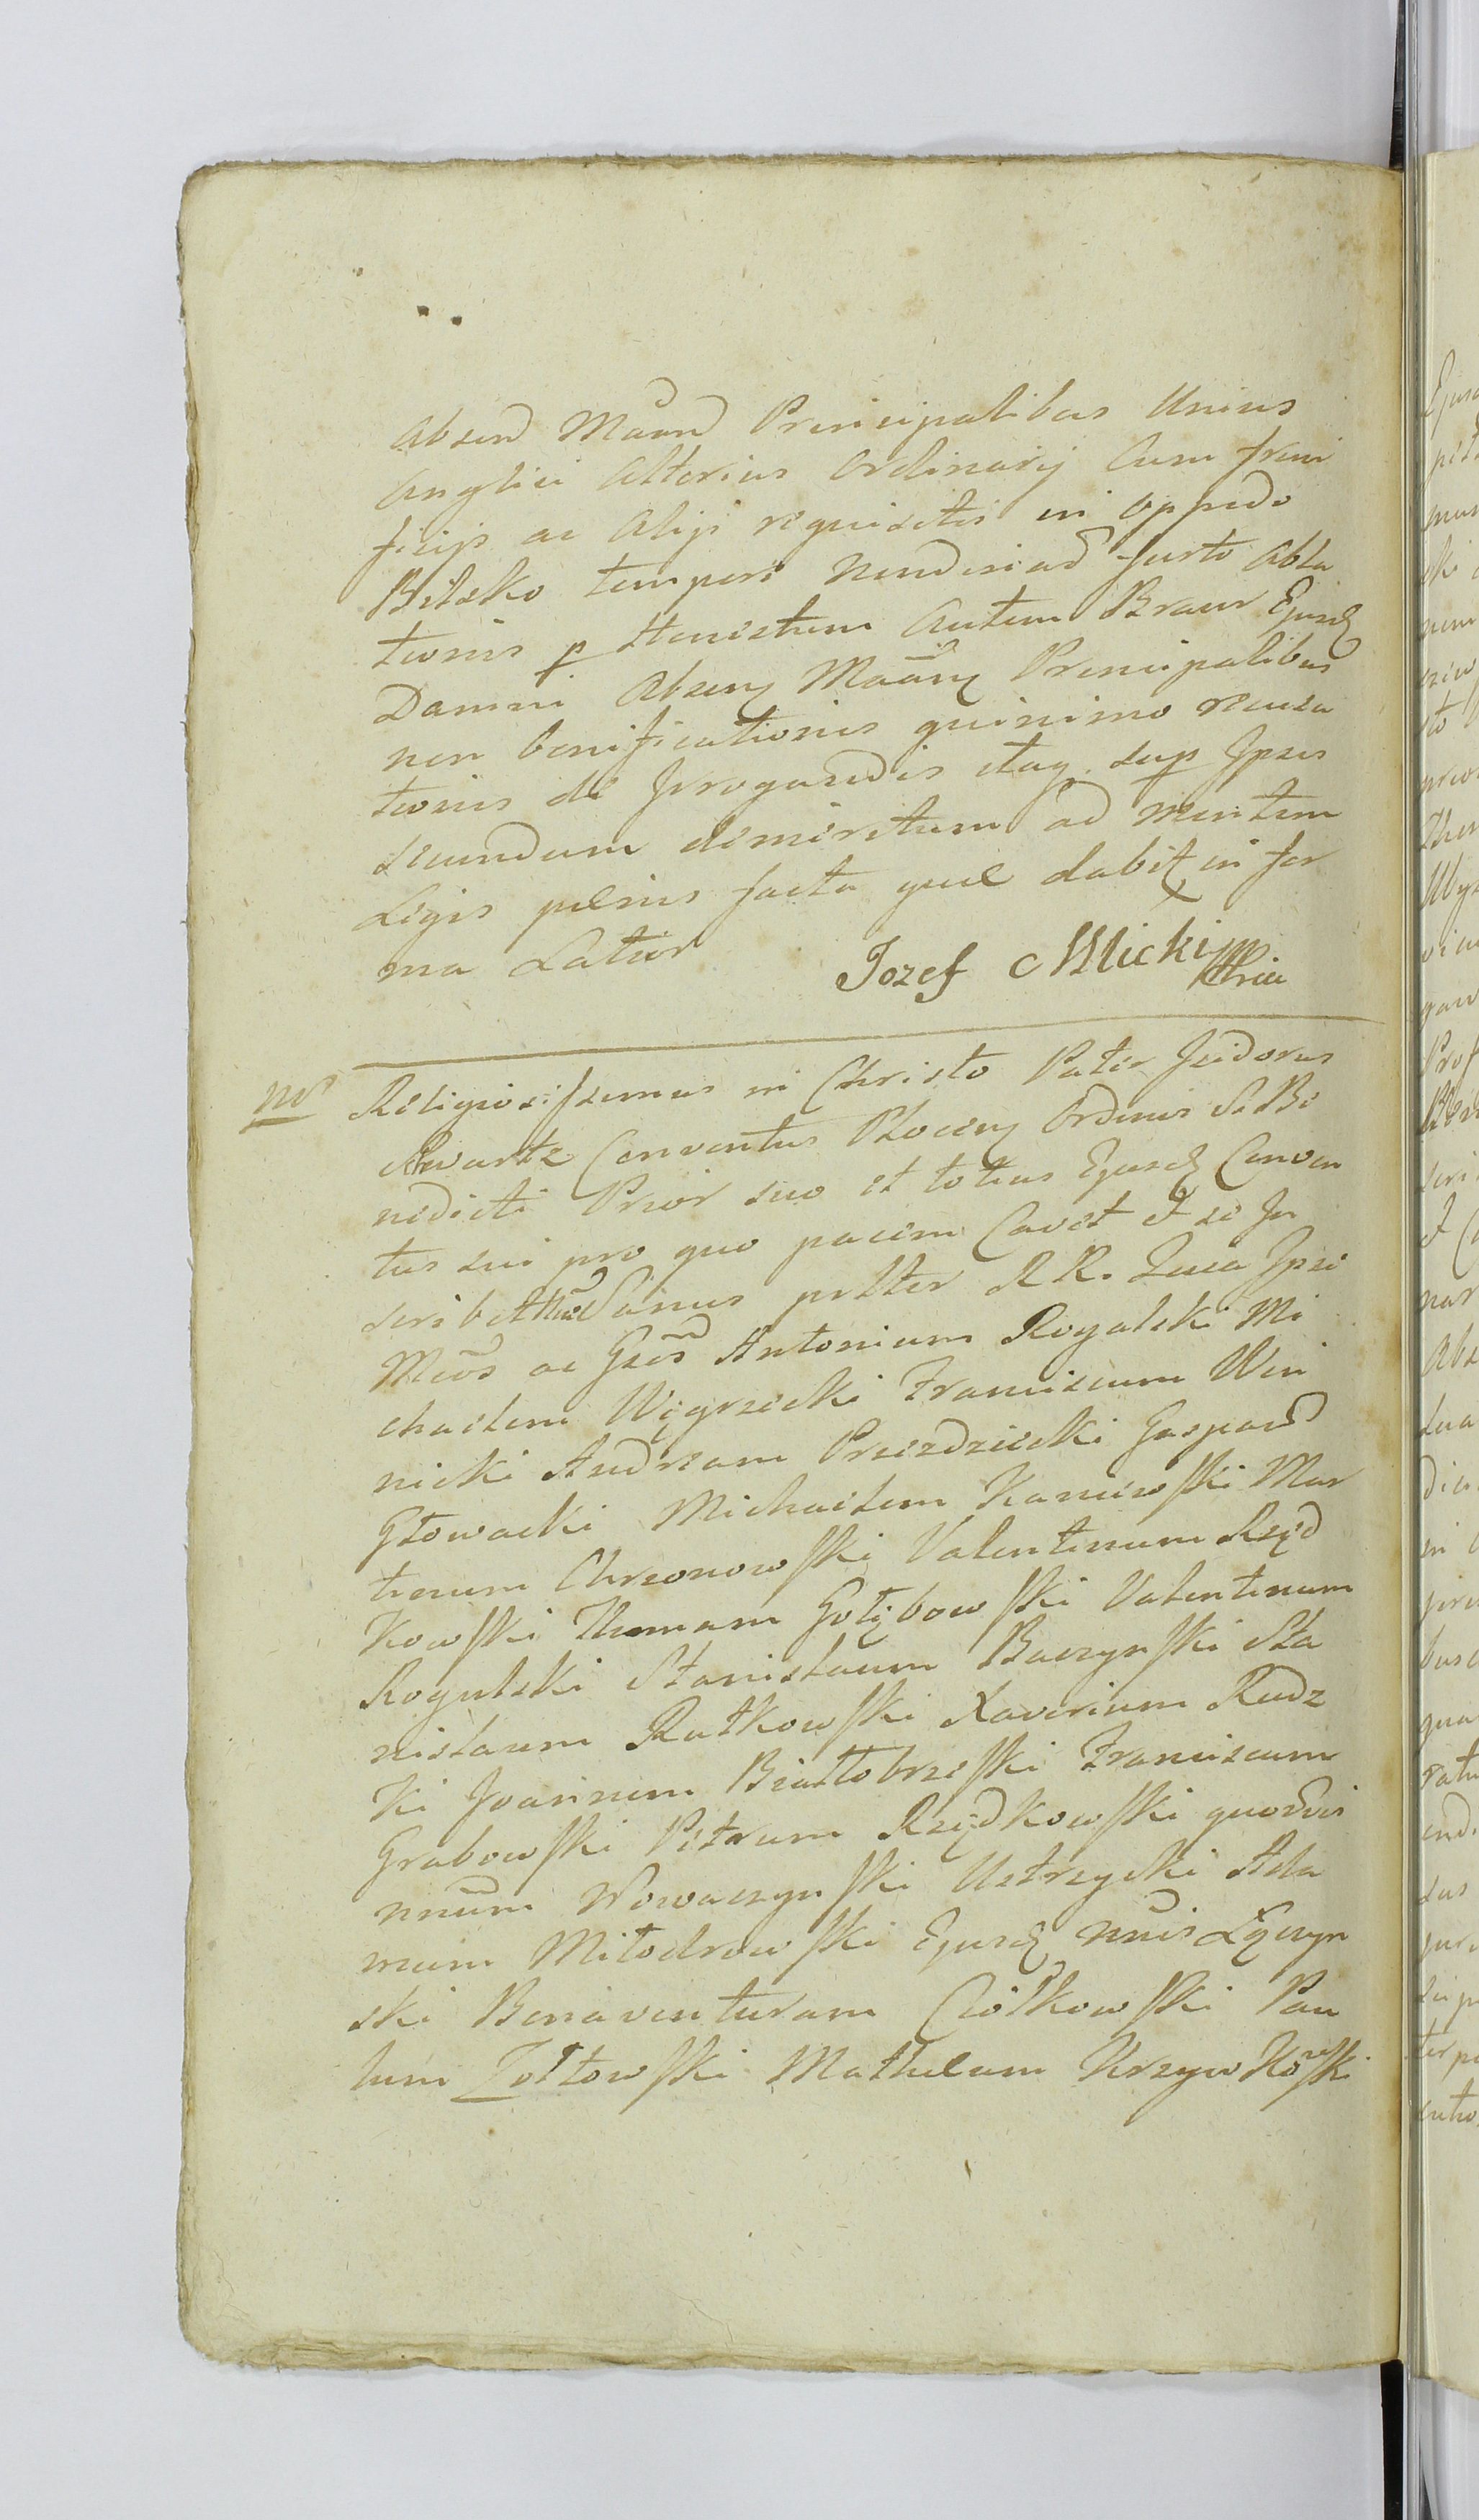 Absend Maand Principalibus Unius
Anglici Alterius Ordinarij Cum freni
ficijs ac Alijs requisitis in Oppido
Bilsko tempore Nundinad furto abla
tionis p Honestum Antum Braur Ejusd
Damni Absenz Maanz Principalibus
non bonificationis quinimo recusa
tionis de Irrogandis itaq. sup Ipsis
secundum demeritum ad mentem
Legis pœnis facta que dabit in for
ma Latior
Jozef Mlicki
Religiosissimus in Christo Pater Isidorus
Szwartz Conventus Plocenz Ordinis S. Be
nedicti Prior suo et totius Ejusd Conven
tus sui pro quo pacem Cavet et se In
scribet Noe Canus pstter R R. Luca Ipse
Mcos ac Gsos Antonium Rogalski Mi
chaelem Węgrzecki Franciscum Win
nicki Andream Przezdziecki Gaspard
Głowacki Michaelem Kaniewski Mar
tinum Chrzonowski Valentinum Rzęd
kowski Thomam Gołębowski Valentinum
Rogulski Stanislaum Baczynski Sta
nislaum Rutkowski Xaverium Rudz
ki Joannem Białłobrzeski Franciscum
Grabowski Petrum Rzędkowski quondvis
nnum Nowaczynski Ustrzycki Ada
mum Miłodrowski Ejusd nnis Łączyn
ski Bonaventuram Ciołkowski Pau
lum Zołtowski Matheum Krzywkowski